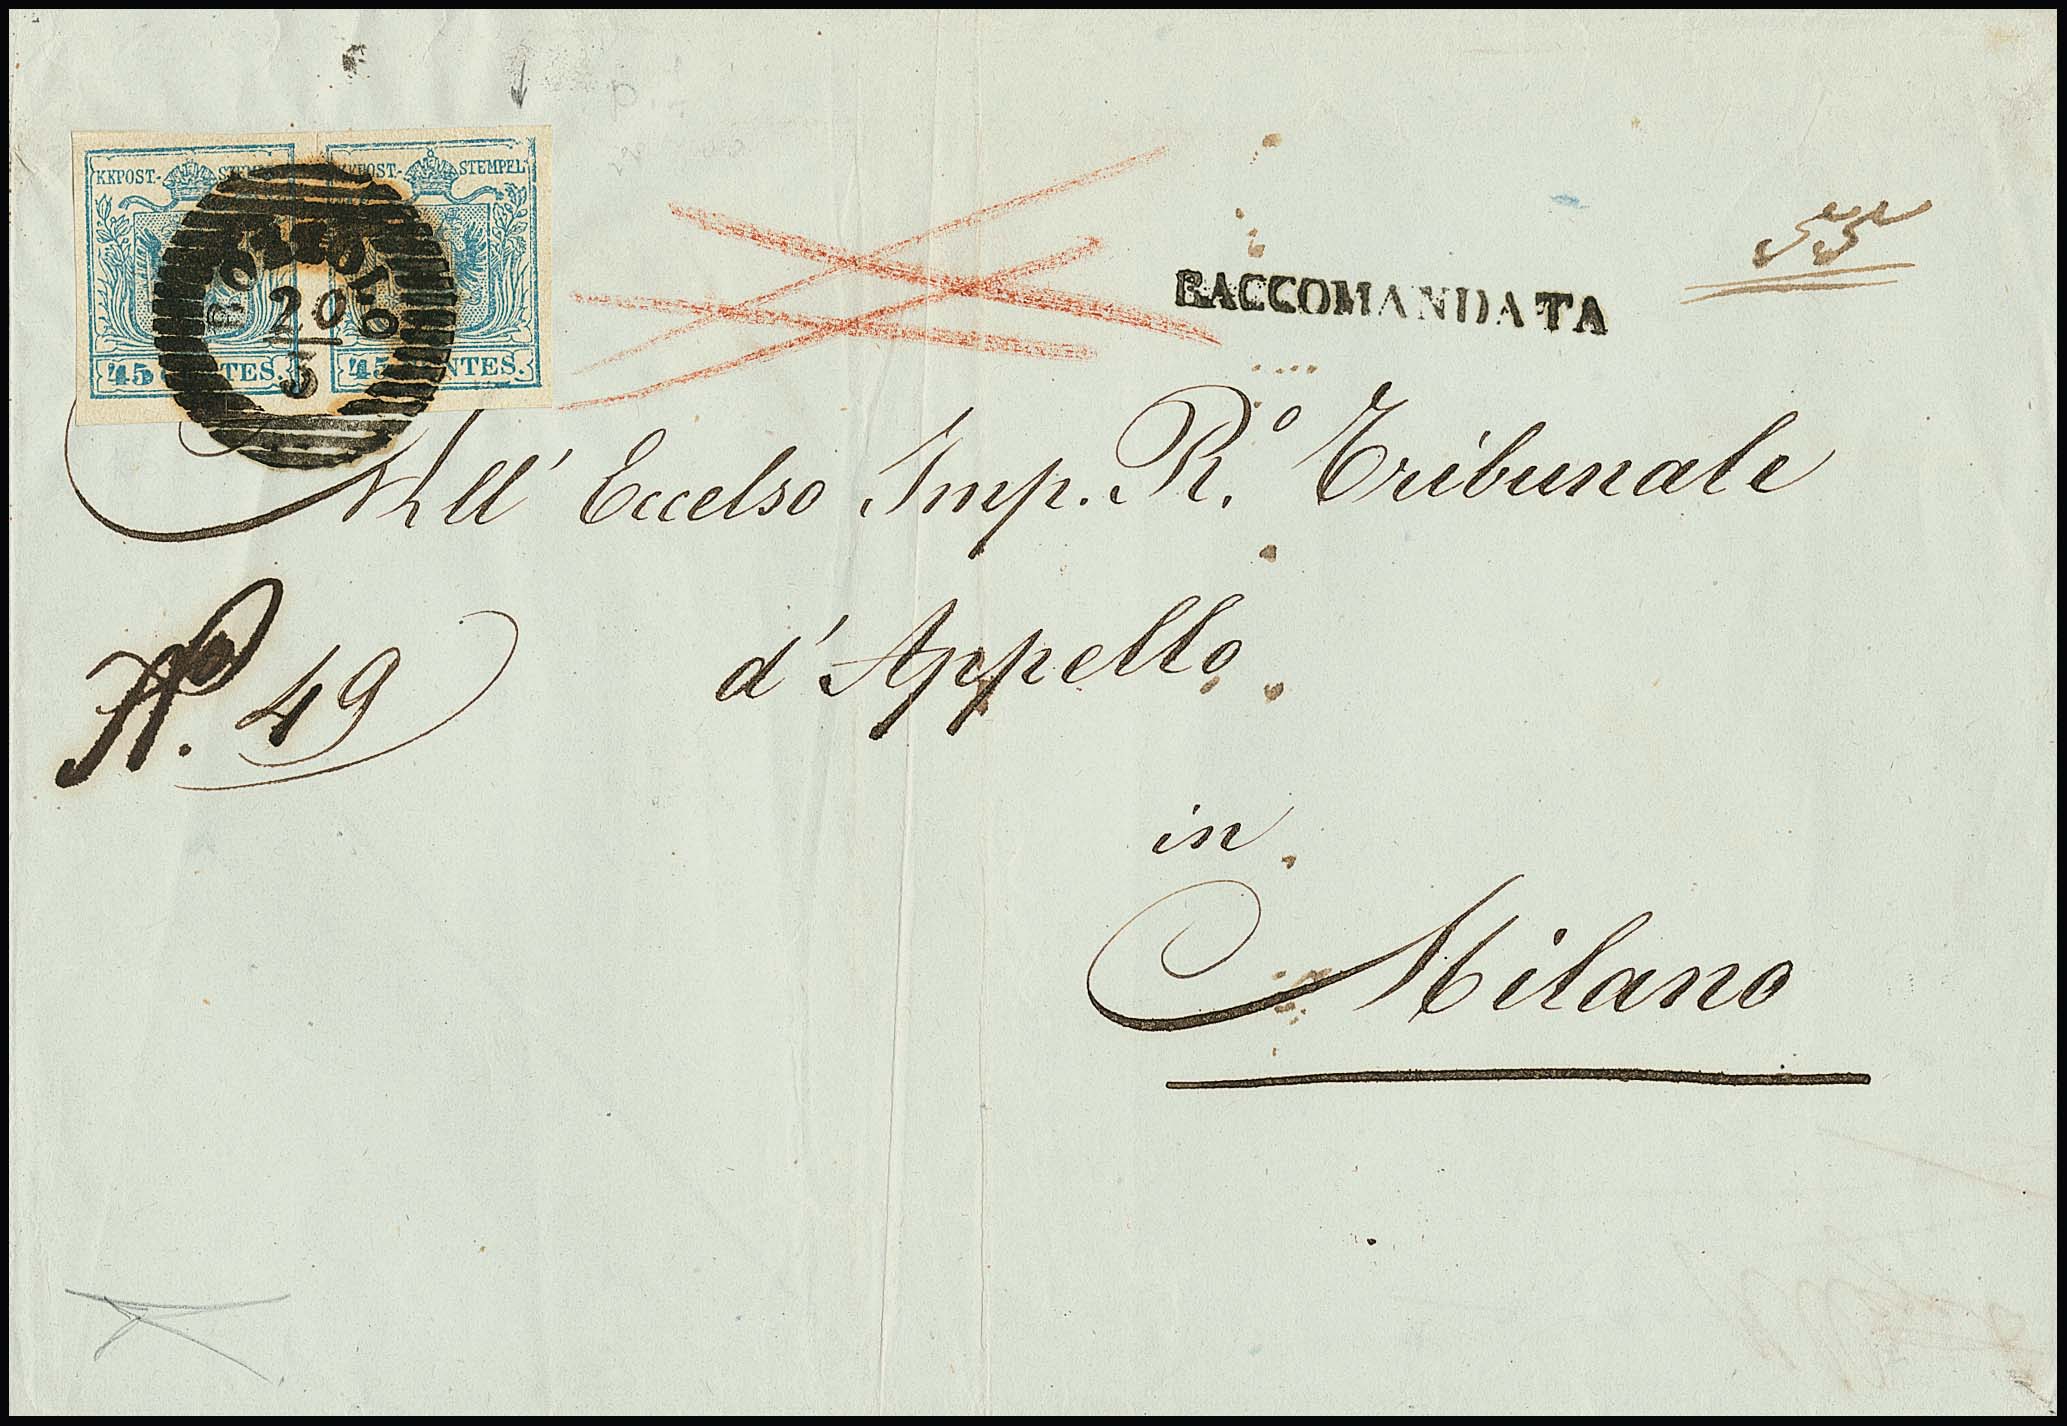 KKPOST- STEMPEL
KKPOST- STEMPEL
BOZZOLO
20
3
45 CENTES.
45 CENTES.
RACCOMANDATA
All' Eccelso Imp. R.º Tribunale
N.º 49
d'Appello
in
Milano